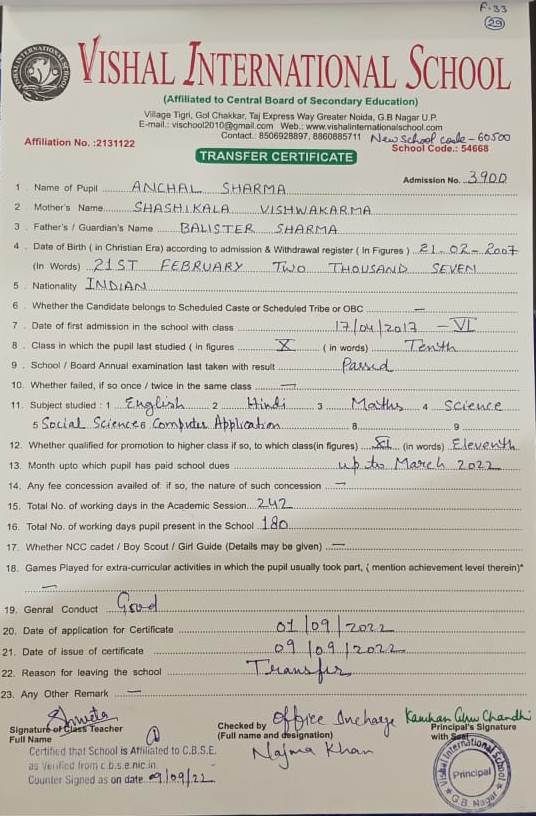 F-33
29
VISHAL INTERNATIONAL SCHOOL
(Affiliated to Central Board of Secondary Education)
Village Tigri, Gol Chakkar, Taj Express Way Greater Noida, G.B Nagar U.P.
E-mail.: vischool2010@gmail.com Web.: www.vishalinternationalschool.com
Contact.: 8506928897, 8860885711 New School code - 60500
Affiliation No. :2131122 School Code.: 54668
TRANSFER CERTIFICATE
Admission No. 3900
1 Name of Pupil ANCHAL SHARMA
2 Mother's Name SHASHIKALA VISHWAKARMA
3 Father's / Guardian's Name BALISTER SHARMA
4 Date of Birth ( in Christian Era) according to admission & Withdrawal register ( In Figures ) 21-02-2007
(In Words) 21ST FEBRUARY TWO THOUSAND SEVEN
5 Nationality INDIAN
6 Whether the Candidate belongs to Scheduled Caste or Scheduled Tribe or OBC —
7 Date of first admission in the school with class 17/04/2017 - VI
8 Class in which the pupil last studied ( in figures X ( in words) Tenth
9 School / Board Annual examination last taken with result Passed
10. Whether failed, if so once / twice in the same class —
11. Subject studied : 1 English 2 Hindi 3 Maths 4 Science
5 Social Science 6 Computer Application 8 9
12. Whether qualified for promotion to higher class if so, to which class(in figures) XI (in words) Eleventh
13. Month upto which pupil has paid school dues up to March 2022
14. Any fee concession availed of: if so, the nature of such concession —
15. Total No. of working days in the Academic Session 242
16. Total No. of working days pupil present in the School 180
17. Whether NCC cadet / Boy Scout / Girl Guide (Details may be given) —
18. Games Played for extra-curricular activities in which the pupil usually took part, ( mention achievement level therein)*
—
19. Genral Conduct Good
20. Date of application for Certificate 01/09/2022
21. Date of issue of certificate 09/09/2022
22. Reason for leaving the school Transfer
23. Any Other Remark —
Shweta
Signature of Class Teacher
Full Name
Checked by Office Incharge
(Full name and designation)
Najma Khan
Principal's Signature
with Seal
Certified that School is Affiliated to C.B.S.E.
as Verified from c.b.s.e.nic.in.
Counter Signed as on date 09/09/22
Vishal International School
Principal
G.B. Nagar